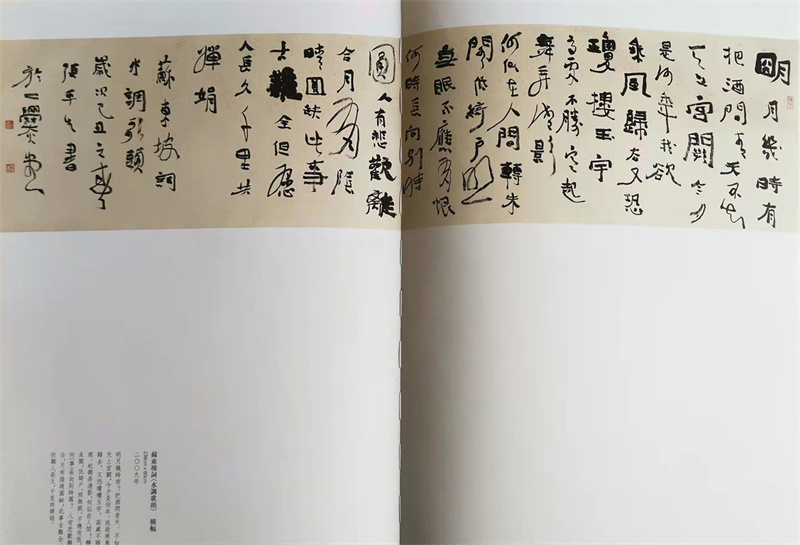 明月幾時有
把酒問青天不知
天上宮闕今夕
是何年我欲
乘風歸去又恐
瓊樓玉宇
高處不勝寒起
舞弄清影
何似在人間轉朱
閣低綺戶照
無眠不應有恨
何時長向別時
圓人有悲歡離
合月有陰
晴圓缺此事
古難全但願
人長久千里共
嬋娟
蘇東坡詞
水調歌頭
歲次己丑之
書
於一
蘇東坡詞《水調歌頭》 橫幅
二〇〇九年
明月幾時有？把酒問青天。不知
天上宮闕，今夕是何年。我欲乘風
歸去，又恐瓊樓玉宇，高處不勝
寒。起舞弄清影，何似在人間！轉
朱閣，低綺戶，照無眠。不應有恨，
何事長向別時圓？人有悲歡離
合，月有陰晴圓缺，此事古難全。
但願人長久，千里共嬋娟。